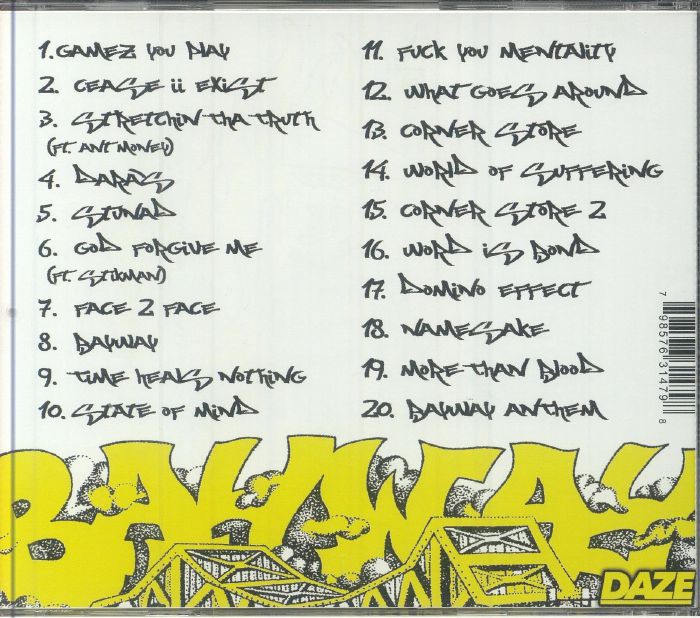 1. GAMEZ YOU PLAY
2. CEASE II EXIST
3. STRETCHIN THA TRUTH
(FT. ANT MONEY)
4. DARA'S
5. STUNAD
6. GOD FORGIVE ME
(FT. STIKMAN)
7. FACE 2 FACE
8. BAYWAY
9. TIME HEALS NOTHING
10. STATE OF MIND
11. FUCK YOU MENTALITY
12. WHAT GOES AROUND
13. CORNER STORE
14. WORLD OF SUFFERING
15. CORNER STORE 2
16. WORD IS BOND
17. DOMINO EFFECT
18. NAMESAKE
19. MORE THAN BLOOD
20. BAYWAY ANTHEM
7 98576 31479 8
BAYWAY
DAZE